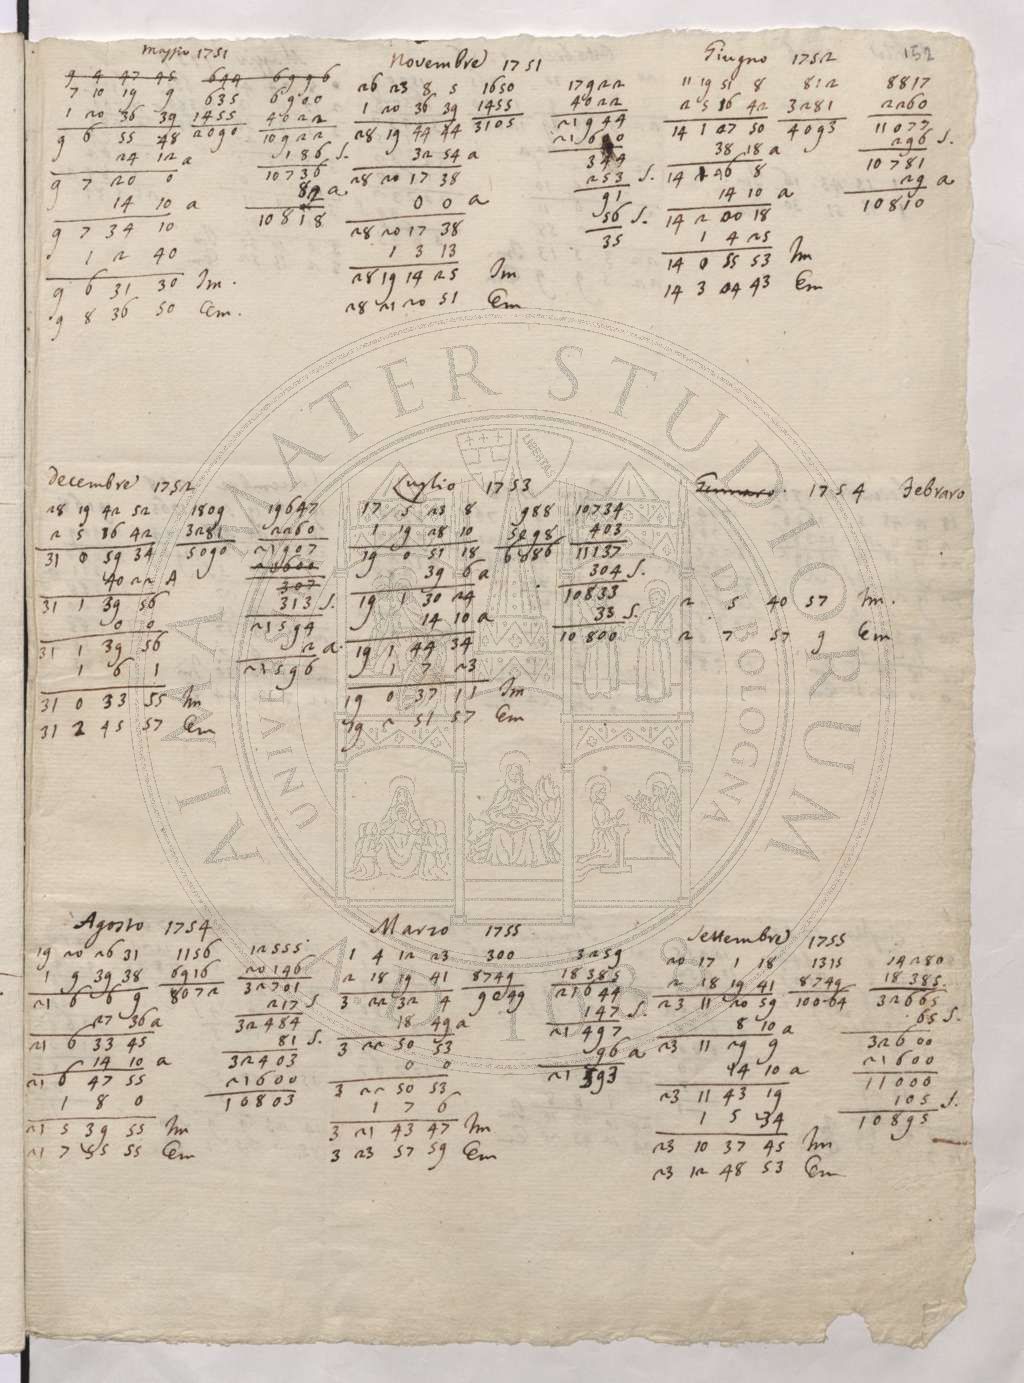 152
Maggio 1751
9 4 47 45 644 6996
7 10 19 9 635 6900
1 20 36 39 1455 4022
9 6 55 48 2090 10922
24 12 a 186 S.
9 7 20 0 10736
14 10 a 82 a
9 7 34 10 10818
1 2 40
9 6 31 30 Im.
9 8 36 50 Em.
Novembre 1751
26 23 8 5 1650 17922
1 20 36 39 1455 4022
28 19 44 44 3105 21944
32 54 a 21600
28 20 17 38 344
0 0 a 253 S.
28 20 17 38 91
1 3 13 56 S.
28 19 14 25 Im 35
28 21 20 51 Em
Giugno 1752
11 19 51 8 812 8817
2 5 36 42 3281 2260
14 1 27 50 4093 11077
38 18 a 296 S.
14 2 6 8 10781
14 10 a 29 a
14 2 20 18 10810
1 4 25
14 0 55 53 Im
14 3 04 43 Em
Decembre 1752
28 19 42 52 1809 19647
2 5 16 42 3281 2260
31 0 59 34 5090 21907
40 22 A 21600
31 1 39 56 307
0 0 313 S.
31 1 39 56 21594
1 6 1 2 a.
31 0 33 55 Im 21596
31 2 45 57 Em
Luglio 1753
17 5 23 8 988 10734
1 19 28 10 5298 403
19 0 51 18 6286 11137
39 6 a 304 S.
19 1 30 24 10833
14 10 a 33 S.
19 1 44 34 10800
1 7 23
19 0 37 11 Im
19 2 51 57 Em
Gennaro. 1754 Febraro
2 5 40 57 Im.
2 7 57 9 Em
Agosto 1754
19 20 26 31 1156 12555
1 9 39 38 6916 20146
21 6 6 9 8072 32701
27 36 a 217 S.
21 6 33 45 32484
14 10 a 81 S.
21 6 47 55 32403
1 8 0 21600
21 5 39 55 Im 10803
21 7 55 55 Em
Marzo 1755
1 4 12 23 300 3259
2 18 19 41 8749 18385
3 22 32 4 9049 21644
18 49 a 147 S.
3 22 50 53 21497
0 0 96 a
3 22 50 53 21593
1 7 6
3 21 43 47 Im
3 23 57 59 Em
Settembre 1755
20 17 1 18 1315 14280
2 18 19 41 8749 18385.
23 11 20 59 10064 32665
8 10 a 65 S.
23 11 29 9 32600
14 10 a 21600
23 11 43 19 11000
1 5 34 105 S.
23 10 37 45 Im 10895
23 12 48 53 Em
ALMA MATER STUDIORUM
UNIVERSITÀ DI BOLOGNA
A.D. 1088
LIBERTAS